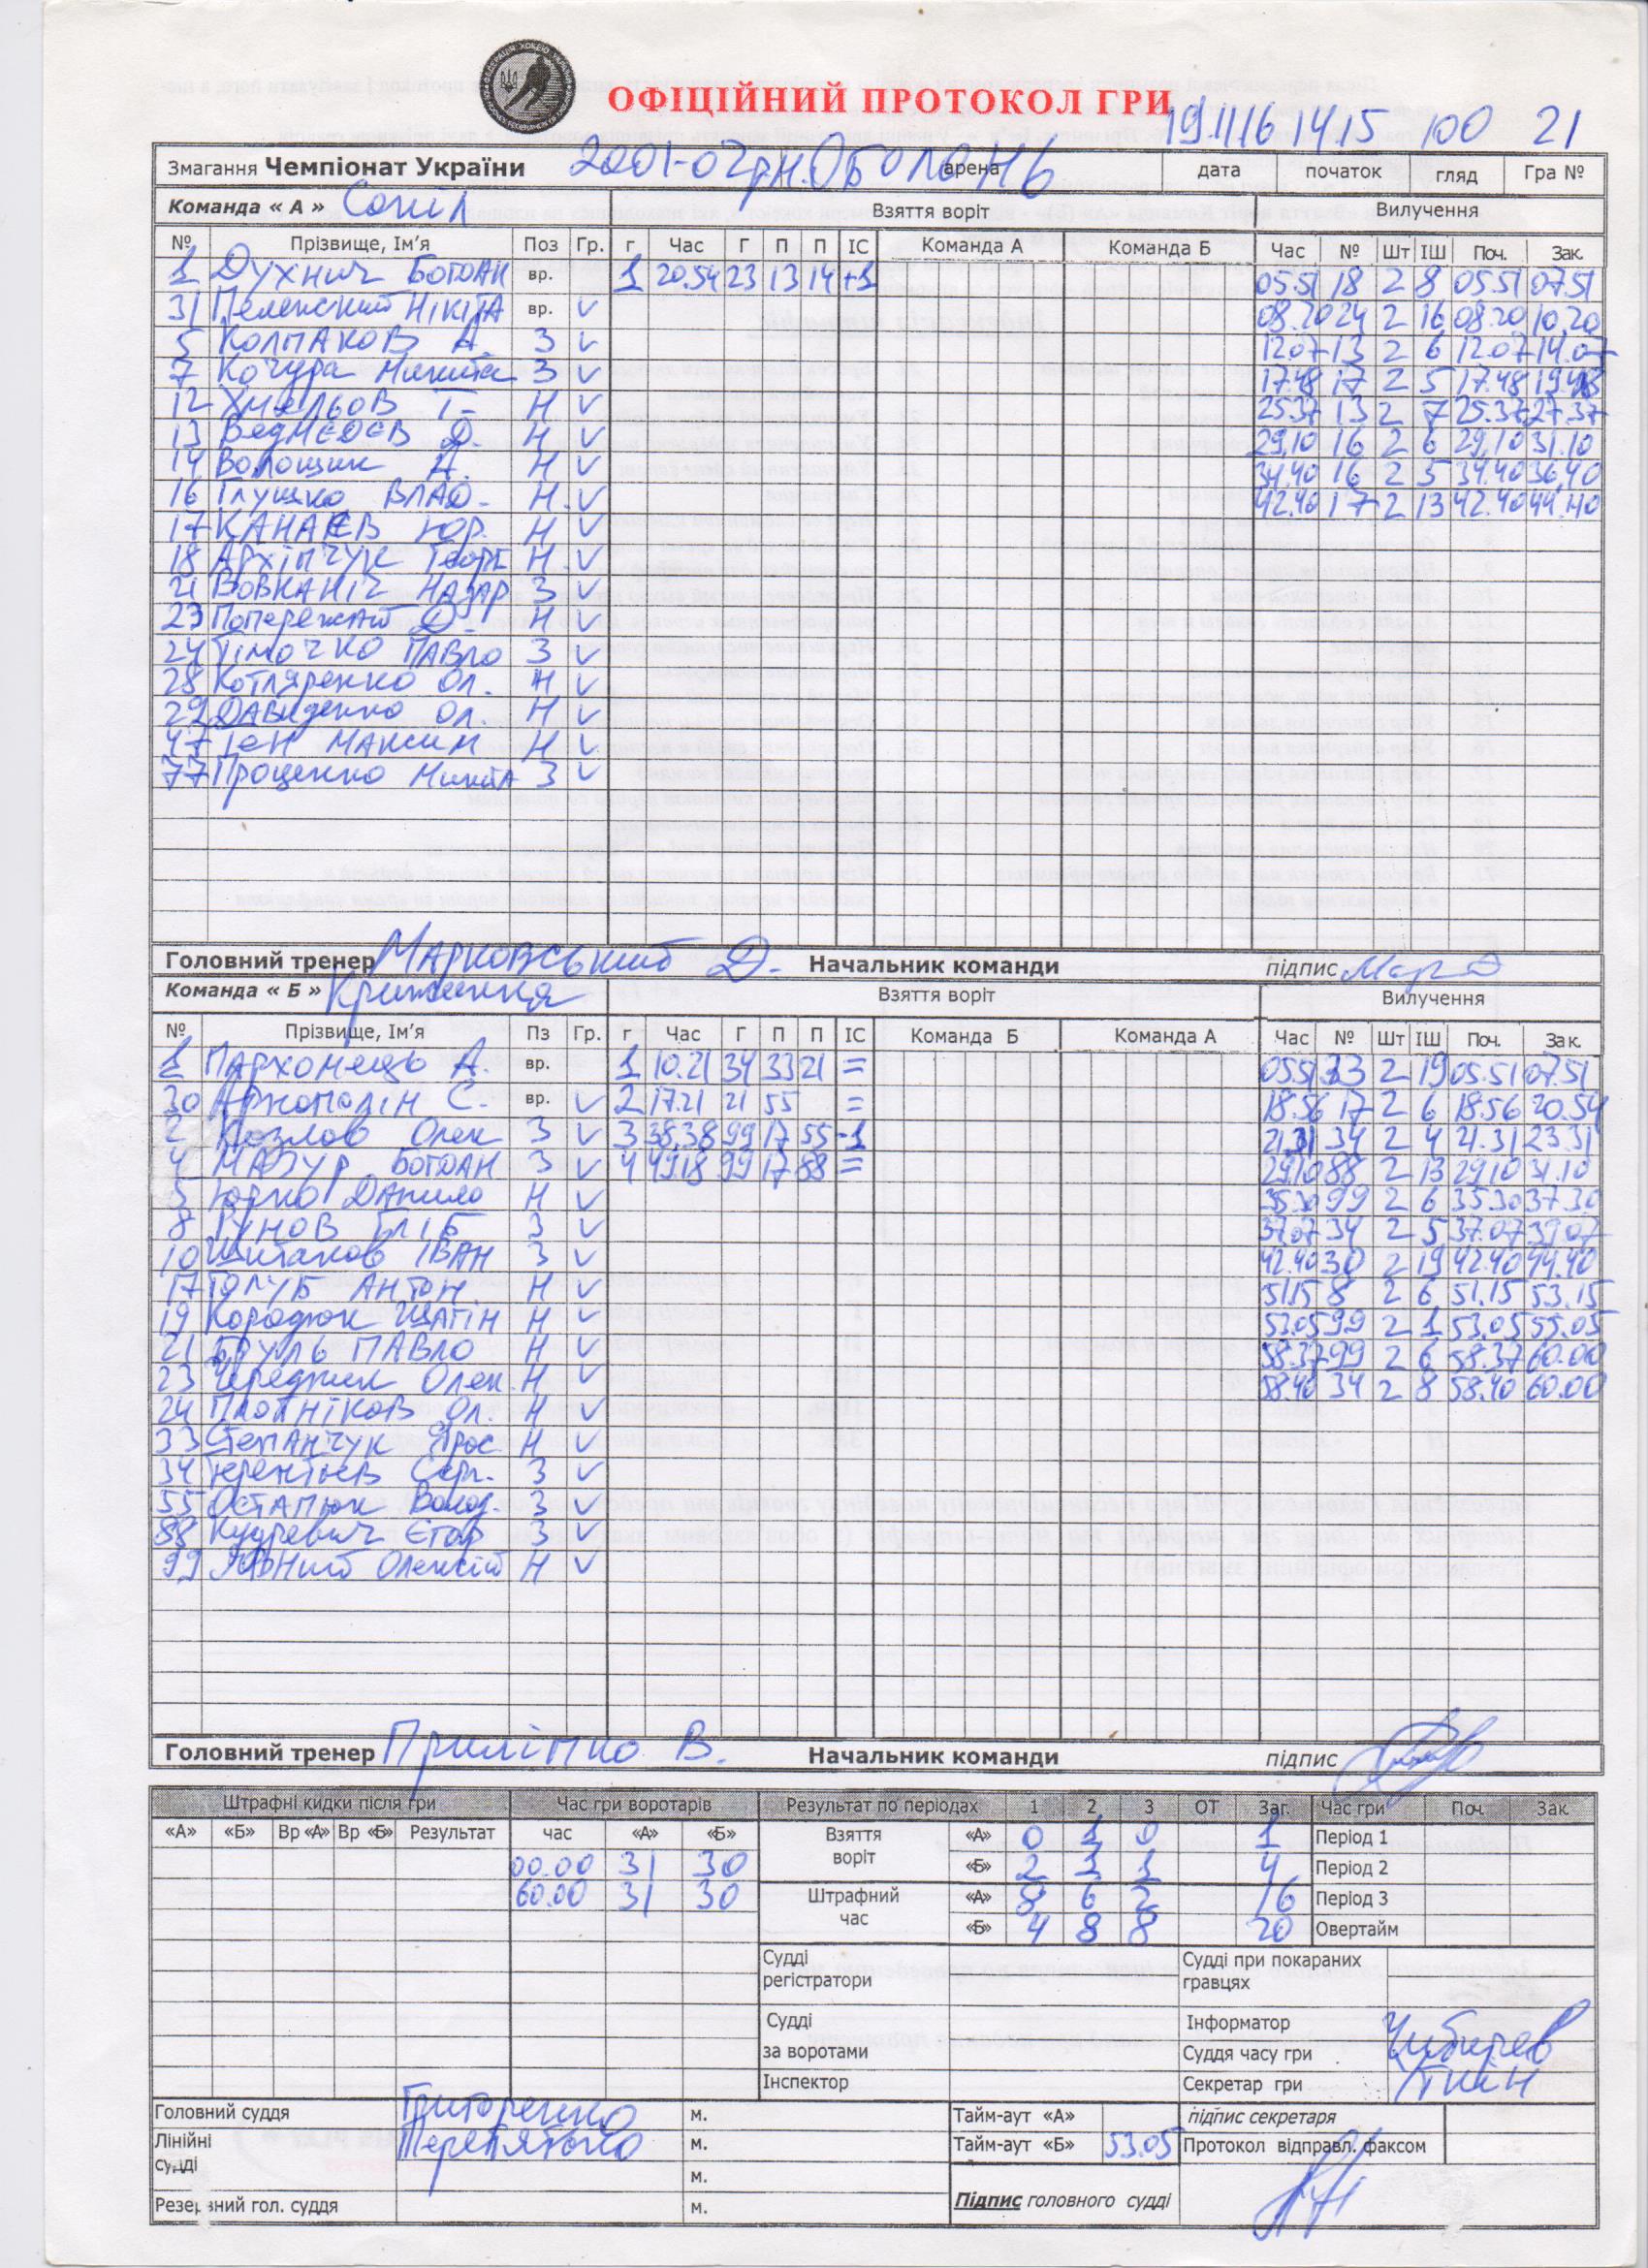 ОФІЦІЙНИЙ ПРОТОКОЛ ГРИ
19.11.16 14.15 100 21
Змагання Чемпіонат України 2001-02 грн. Оболонь арена дата початок гляд Гра №
Команда « А » Сокіл Взяття воріт Вилучення
№ Прізвище, Ім’я Поз Гр. г Час Г П П ІС Команда А Команда Б Час № Шт ІШ Поч. Зак.
1 Духнич Богдан вр. 1 20.54 23 13 14 +1 05.51 18 2 8 05.51 07.51
31 Пеленский Нікіта вр. v 08.20 24 2 16 08.20 10.20
5 Колпаков А. З v 12.07 13 2 6 12.07 14.07
7 Кочура Микита З v 17.48 17 2 5 17.48 19.48
12 Хмельов Т. Н v 25.37 13 2 7 25.37 27.37
13 Ведмедєв Д Н v 29.10 16 2 6 29.10 31.10
14 Волощик А. Н v 34.40 16 2 5 34.40 36.40
16 Глушко Влад. Н. v 42.40 17 2 13 42.40 44.40
17 Канаєв Юр. Н v
18 Архіпчук Георг Н v
21 Вовканіч Назар З v
23 Попережай Д. Н v
24 Тімочко Павло З v
28 Котляренко Ол. Н v
29 Давиденко Ол. Н v
47 Тен Максим Н v
77 Проценко Микита З v
Головний тренер Марковський Д. Начальник команди підпис
Команда « Б » Крижинка Взяття воріт Вилучення
№ Прізвище, Ім’я Пз Гр. г Час Г П П ІС Команда Б Команда А Час № Шт ІШ Поч. Зак.
1 Пархомець А. вр. 1 10.21 34 33 21 = 05.51 33 2 19 05.51 07.51
30 С. вр. v 2 17.21 21 55 = 18.56 17 2 6 18.56 20.54
2 Козлов Олек З v 3 38.38 99 17 55 -1 21.31 34 2 4 21.31 23.31
4 Мазур Богдан З v 4 49.18 99 17 88 = 29.10 88 2 13 29.10 31.10
5 Юрко Данило Н v 35.30 99 2 6 35.30 37.30
8 Рунов Гліб З v 37.07 34 2 5 37.07 39.07
10 Іван З v 42.40 30 2 19 42.40 44.40
17 Голуб Антон Н v 51.15 8 2 6 51.15 53.15
19 Н v 53.05 99 2 1 53.05 55.05
21 Бруль Павло Н v 58.37 99 2 6 58.37 60.00
23 Чередник Олек. Н v 58.40 34 2 8 58.40 60.00
24 Плотніков Ол. Н v
33 Степанчук Ярос Н v
34 Терентьєв Серг. З v
55 Остапюк Волод. З v
88 Кудревич Єгор З v
99 Олексій Н v
Головний тренер Прилипко В. Начальник команди підпис
Штрафні кидки після гри Час гри воротарів Результат по періодах 1 2 3 ОТ Заг. Час гри Поч. Зак.
«А» «Б» Вр «А» Вр «Б» Результат час «А» «Б» Взяття воріт «А» 0 1 0 1 Період 1
00.00 31 30 «Б» 2 1 1 4 Період 2
60.00 31 30 Штрафний час «А» 8 6 2 16 Період 3
«Б» 4 8 8 20 Овертайм
Судді регістратори Судді при покараних гравцях
Судді за воротами Інформатор
Суддя часу гри Чибирев
Інспектор Секретар гри
Головний суддя Григоренко м. Тайм-аут «А» підпис секретаря
Лінійні судді Перепятько м. Тайм-аут «Б» 53.05 Протокол відправл. факсом
м.
Резервний гол. суддя м. Підпис головного судді